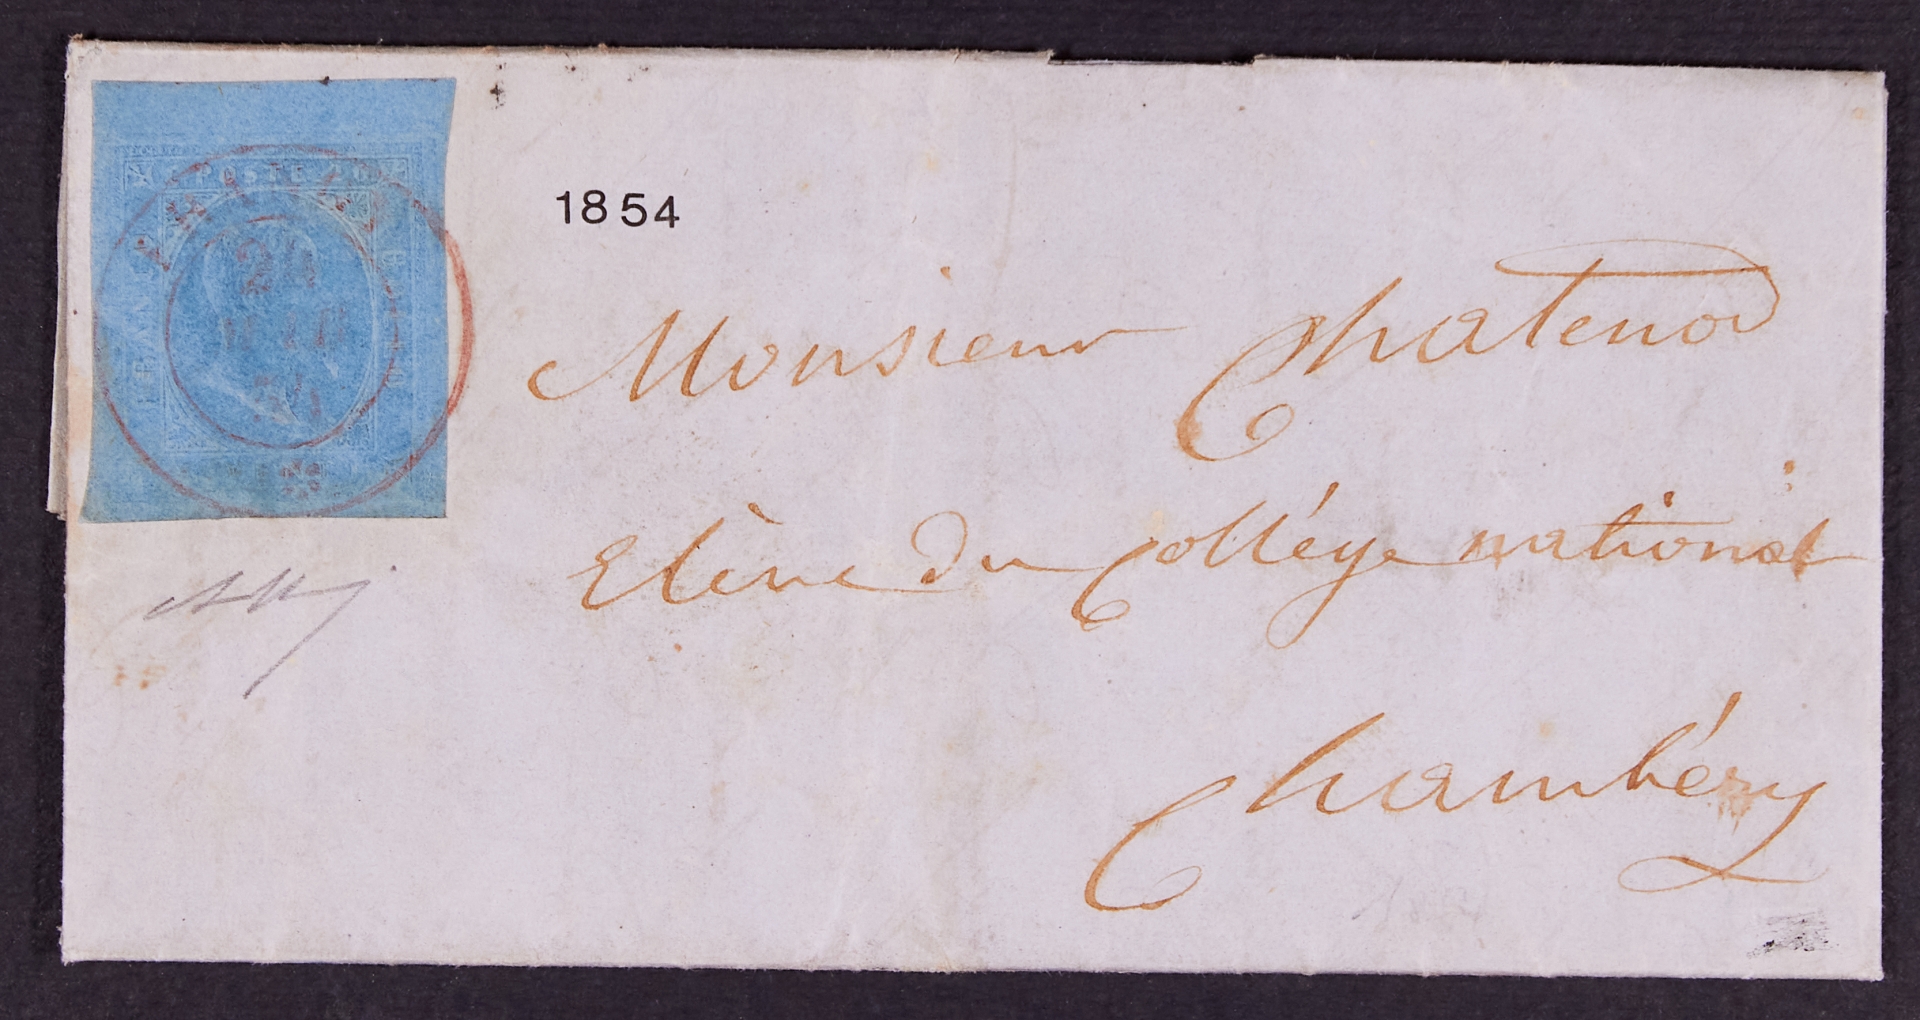 POSTE
24
MAR
54
1854
Monsieur Chatenod
Elève du Collége national
Chambéry